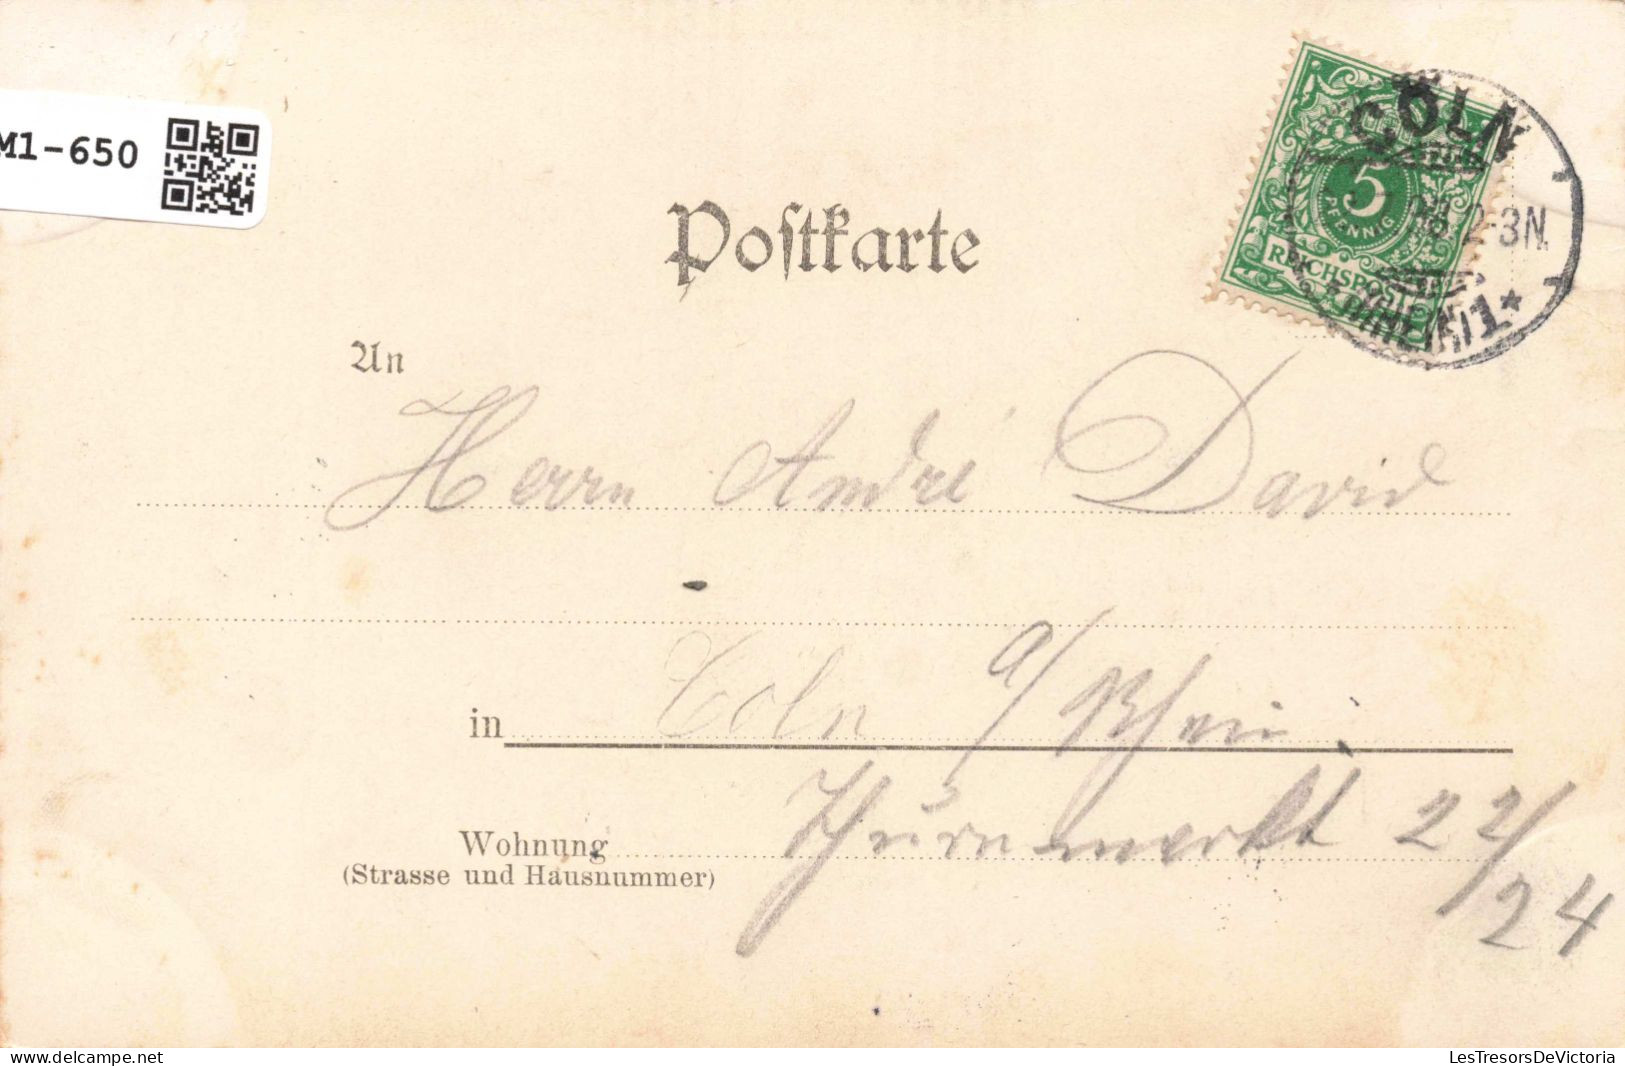 M1-650
CÖLN
5
PFENNIG
REICHSPOST
2-3N.
* 1 *
Poſtkarte
An
Herrn André David
in Cöln a/ Rhein.
Wohnung Thurnmarkt 22/
(Strasse und Hausnummer)
24
delcampe.net
LesTresorsDeVictoria